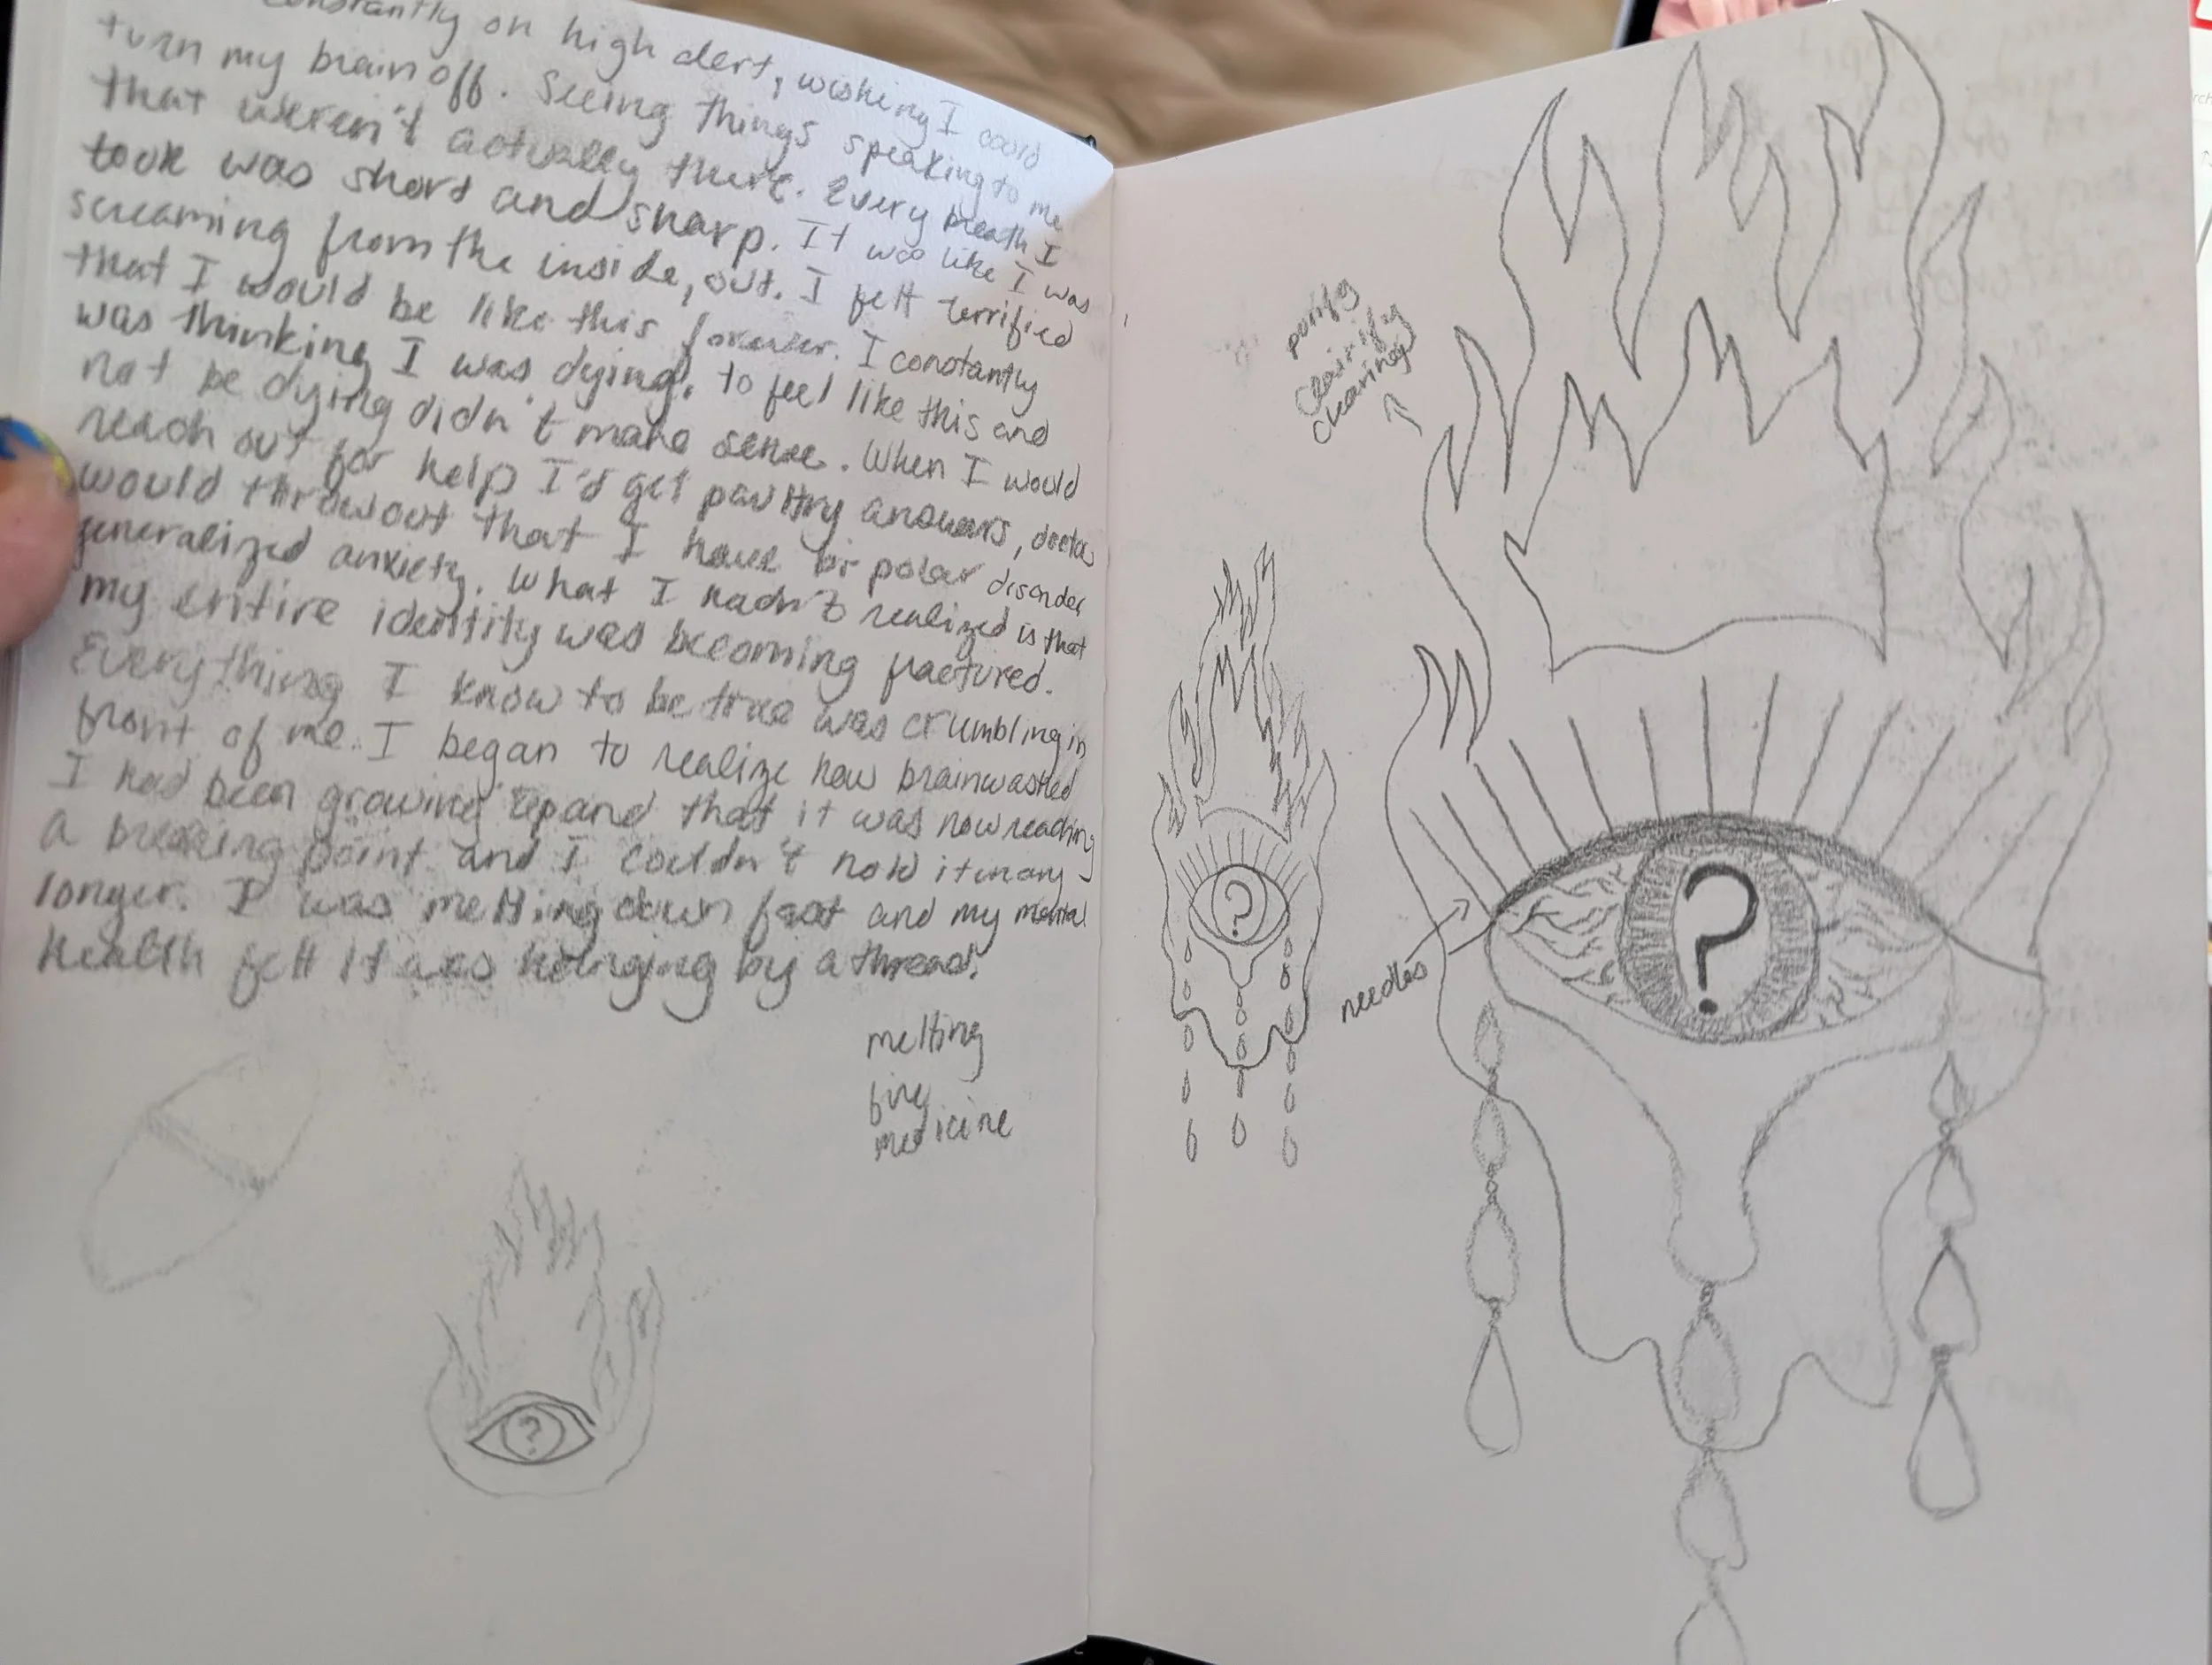 constantly on high alert, wishing I could
turn my brain off. Seeing things speaking to me
that weren't actually there. Every breath I
took was short and sharp. It was like I was
screaming from the inside, out. I felt terrified
that I would be like this forever. I constantly
was thinking I was dying, to feel like this and
not be dying didn't make sense. When I would
reach out for help I'd get paultry answers, doctors
would throwout that I have bi polar disorder,
generalized anxiety. What I hadn't realized is that
my entire identity was becoming fractured.
Everything I know to be true was crumbling in
front of me. I began to realize how brainwashed
I had been growing up and that it was now reaching
a breaking point and I couldn't hold it in any
longer. I was melting down fast and my mental
health felt it was hanging by a thread.
melting
fire
medicine
purify
clairify
charing
?
needles
?
?